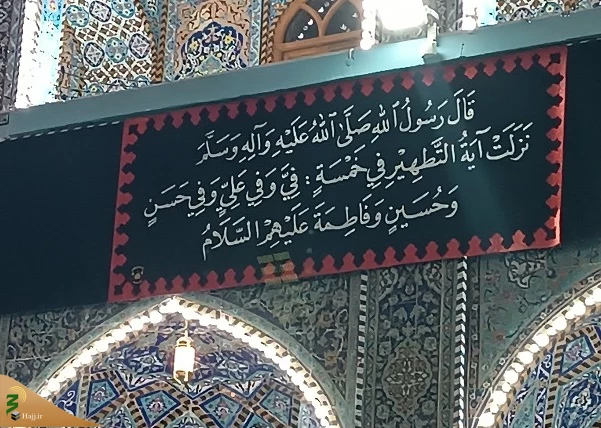 قَالَ رَسُولُ اللهِ صَلَّى اللهُ عَلَيْهِ وَآلِهِ وَسَلَّمَ
نَزَلَتْ آيَةُ التَّطْهِيْرِ فِي خَمْسَةٍ : فِيَّ وَفِي عَلِيٍّ وَفِي حَسَنٍ
وَحُسَيْنٍ وَفَاطِمَةَ عَلَيْهِمُ السَّلَامُ
Hajj.ir